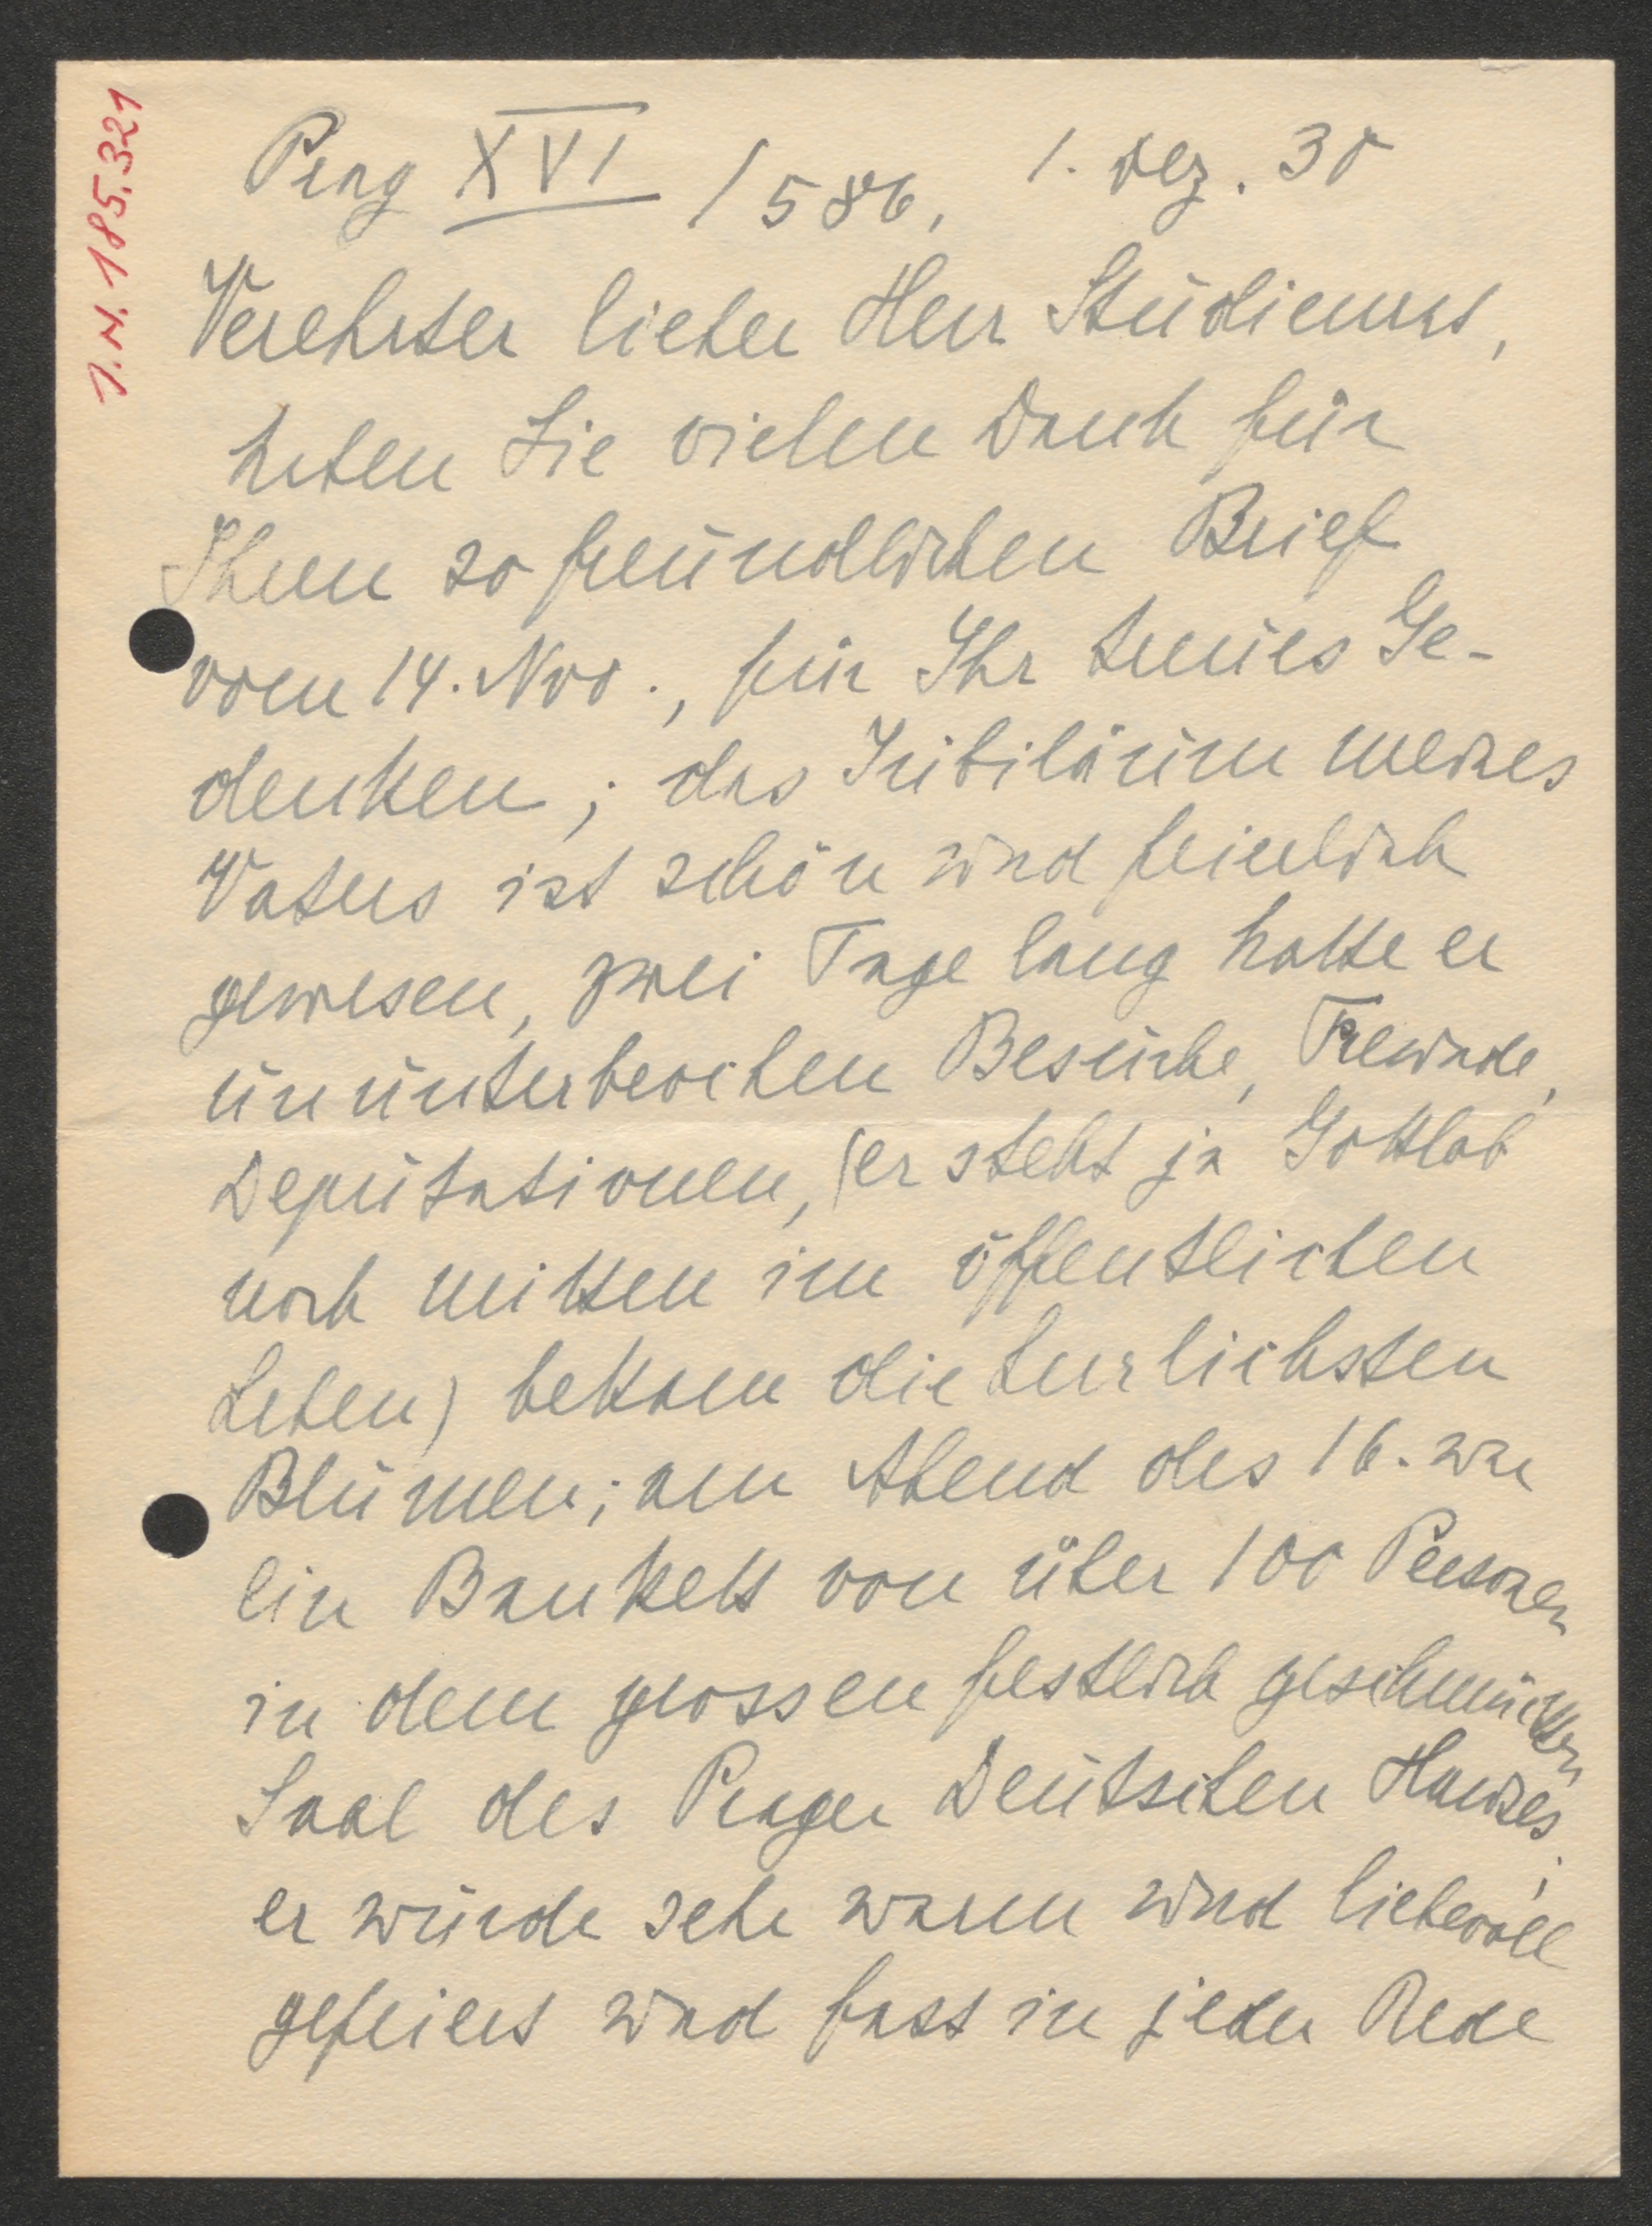 I.N. 185.321
Prag XVI / 586, 1. Dez. 30
Verehrter lieber Herr Studienrat,
haben Sie vielen Dank für
Ihren so freundlichen Brief
vom 14. Nov., für Ihr treues Ge-
denken; das Jubiläum meines
Vaters ist schön und feierlich
gewesen, zwei Tage lang hatte er
ununterbrochen Besuche, Freunde,
Deputationen, (er steht ja Gottlob
noch mitten im öffentlichen
Leben) bekam die herrlichsten
Blumen; am Abend des 16. war
ein Bankett von über 100 Personen
in dem grossen festlich geschmückten
Saal des Prager Deutschen Hauses;
er wurde sehr warm und liebevoll
gefeiert und fast in jeder Rede